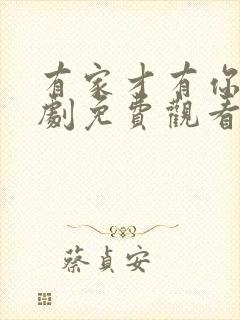 有家才有你
劇免費觀看
蔡貞安